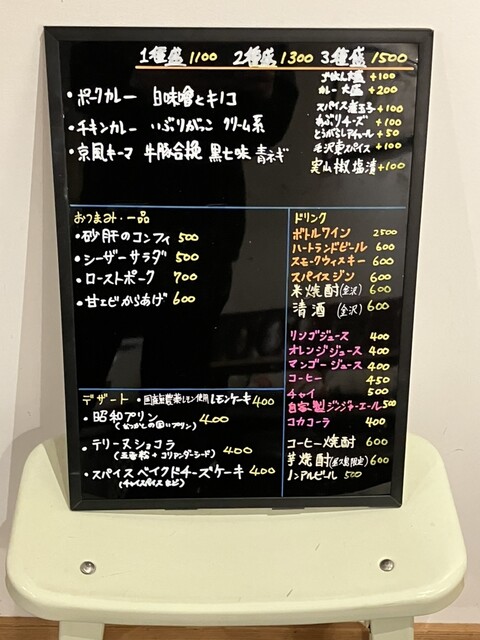 1種盛 1100 2種盛 1300 3種盛 1500
大盛 +100
カレー大盛 +200
スパイス煮玉子 +100
あぶりチーズ +100
とうがらしアチャール +50
毛沢東スパイス +100
実山椒塩漬 +100
・ポークカレー 白味噌とキノコ
・チキンカレー いぶりがっこ クリーム系
・京風キーマ 牛豚合挽 黒七味 青ネギ
おつまみ・一品
・砂肝のコンフィ 500
・シーザーサラダ 500
・ローストポーク 700
・甘エビからあげ 600
ドリンク
ボトルワイン 2500
ハートランドビール 600
スモークウィスキー 600
スパイスジン 600
米焼酎(金沢) 600
清酒(金沢) 600
リンゴジュース 400
オレンジジュース 400
マンゴージュース 400
コーヒー 450
チャイ 500
自家製ジンジャーエール 500
コカコーラ 400
コーヒー焼酎 600
芋焼酎(限定) 600
ノンアルビール 500
デザート ・国産無農薬レモン使用レモンケーキ 400
・昭和プリン 400
(なつかしの固いプリン)
・テリーヌショコラ 400
(五香粉+コリアンダーシード)
・スパイスベイクドチーズケーキ 400
(チャイスパイスなど)